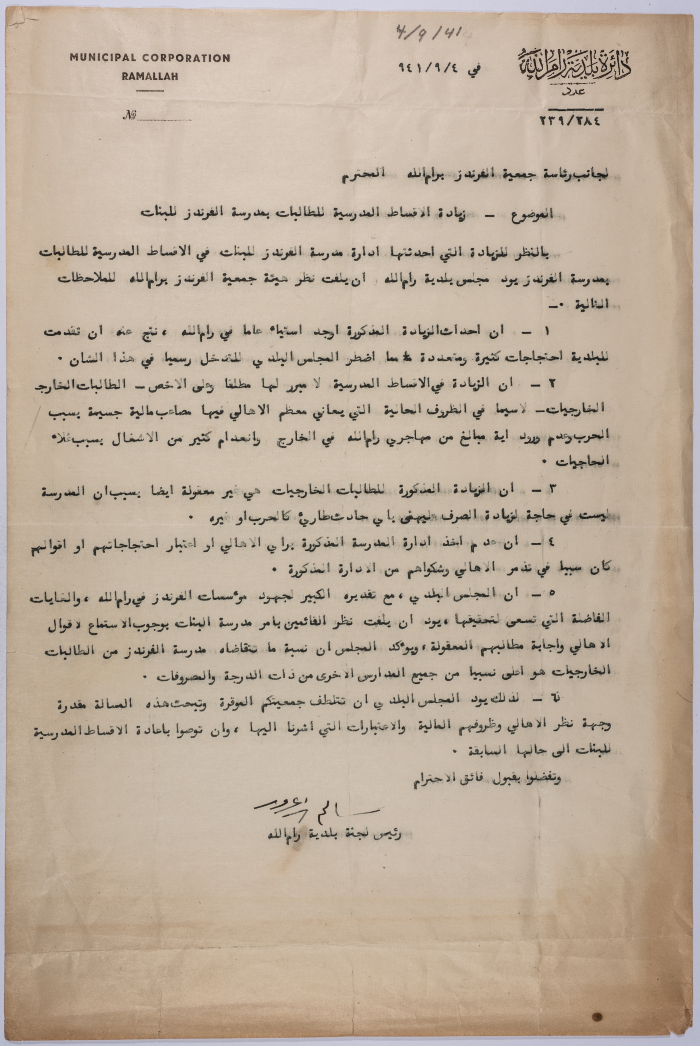 4/9/41
MUNICIPAL CORPORATION
RAMALLAH
№
دائرة بلدية رام الله
عدد
في ٩٤١/٩/٤
٢٣٩/٢٨٤
لجانب رئاسة جمعية الفرندز برام الله المحترم
الموضوع - زيادة الاقساط المدرسية للطالبات بمدرسة الفرندز للبنات
بالنظر للزيادة التي احدثتها ادارة مدرسة الفرندز للبنات في الاقساط المدرسية للطالبات
بمدرسة الفرندز يود مجلس بلدية رام الله ان يلفت نظر هيئة جمعية الفرندز برام الله للملاحظات
التالية :-
١ - ان احداث الزيادة المذكورة اوجد استياء عاما في رام الله ، نتج عنه ان تقدمت
للبلدية احتجاجات كثيرة ومتعددة مما اضطر المجلس البلدي للتدخل رسميا في هذا الشان .
٢ - ان الزيادة في الاقساط المدرسية لا مبرر لها مطلقا وعلى الاخص - الطالبات الخارجـ
الخارجيات - لاسيما في الظروف الحالية التي يعاني معظم الاهالي فيها مصاعب مالية جسيمة بسبب
الحرب وعدم ورود اية مبالغ من مهاجري رام الله في الخارج وانعدام كثير من الاشغال بسبب غلاء
الحاجيات .
٣ - ان الزيادة المذكورة للطالبات الخارجيات هي غير معقولة ايضا بسبب ان المدرسة
ليست في حاجة لزيادة الصرف عليهن باي حادث طارئ كالحرب او غيره .
٤ - ان عدم اخذ ادارة المدرسة المذكورة براي الاهالي او اعتبار احتجاجاتهم او اقوالهم
كان سببا في تذمر الاهالي وشكواهم من الادارة المذكورة .
٥ - ان المجلس البلدي ، مع تقديره الكبير لجهود مؤسسات الفرندز في رام الله ، والغايات
الفاضلة التي تسعى لتحقيقها ، يود ان يلفت نظر القائمين بامر مدرسة البنات بوجوب الاستماع لاقوال
الاهالي واجابة مطاليبهم المعقولة ، ويؤكد المجلس ان نسبة ما تتقاضاه مدرسة الفرندز من الطالبات
الخارجيات هو اعلى نسبيا من جميع المدارس الاخرى من ذات الدرجة والمصروفات .
٦ - لذلك يود المجلس البلدي ان تتلطف جمعيتكم الموقرة وتبحث هذه المسالة مقدرة
وجهة نظر الاهالي وظروفهم المالية والاعتبارات التي اشرنا اليها ، وان توصوا باعادة الاقساط المدرسية
للبنات الى حالها السابقة .
وتفضلوا بقبول فائق الاحترام
رئيس لجنة بلدية رام الله